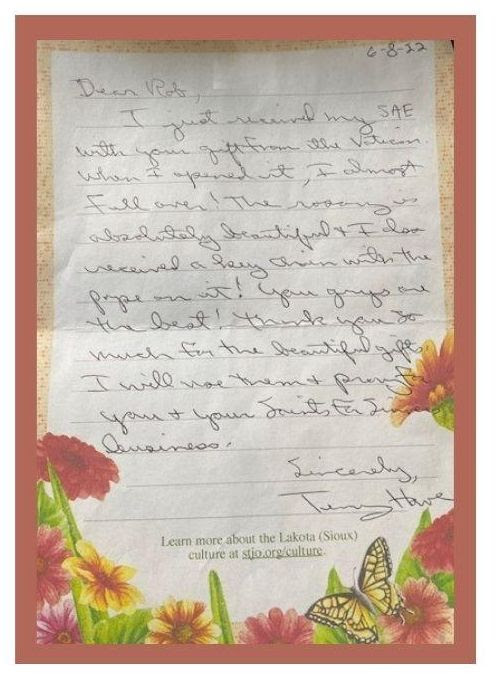 6-8-22
Dear Rob,
I just received my SAE
with your gift from the Vatican.
When I opened it, I almost
Fell over! The rosary is
absolutely beautiful & I also
received a key chain with the
pope on it! You guys are
the best! Thank you so
much for the beautiful gifts
I will use them & pray for
you & your Saints For Sinners
business.
Sincerely,
Learn more about the Lakota (Sioux)
culture at stjo.org/culture.